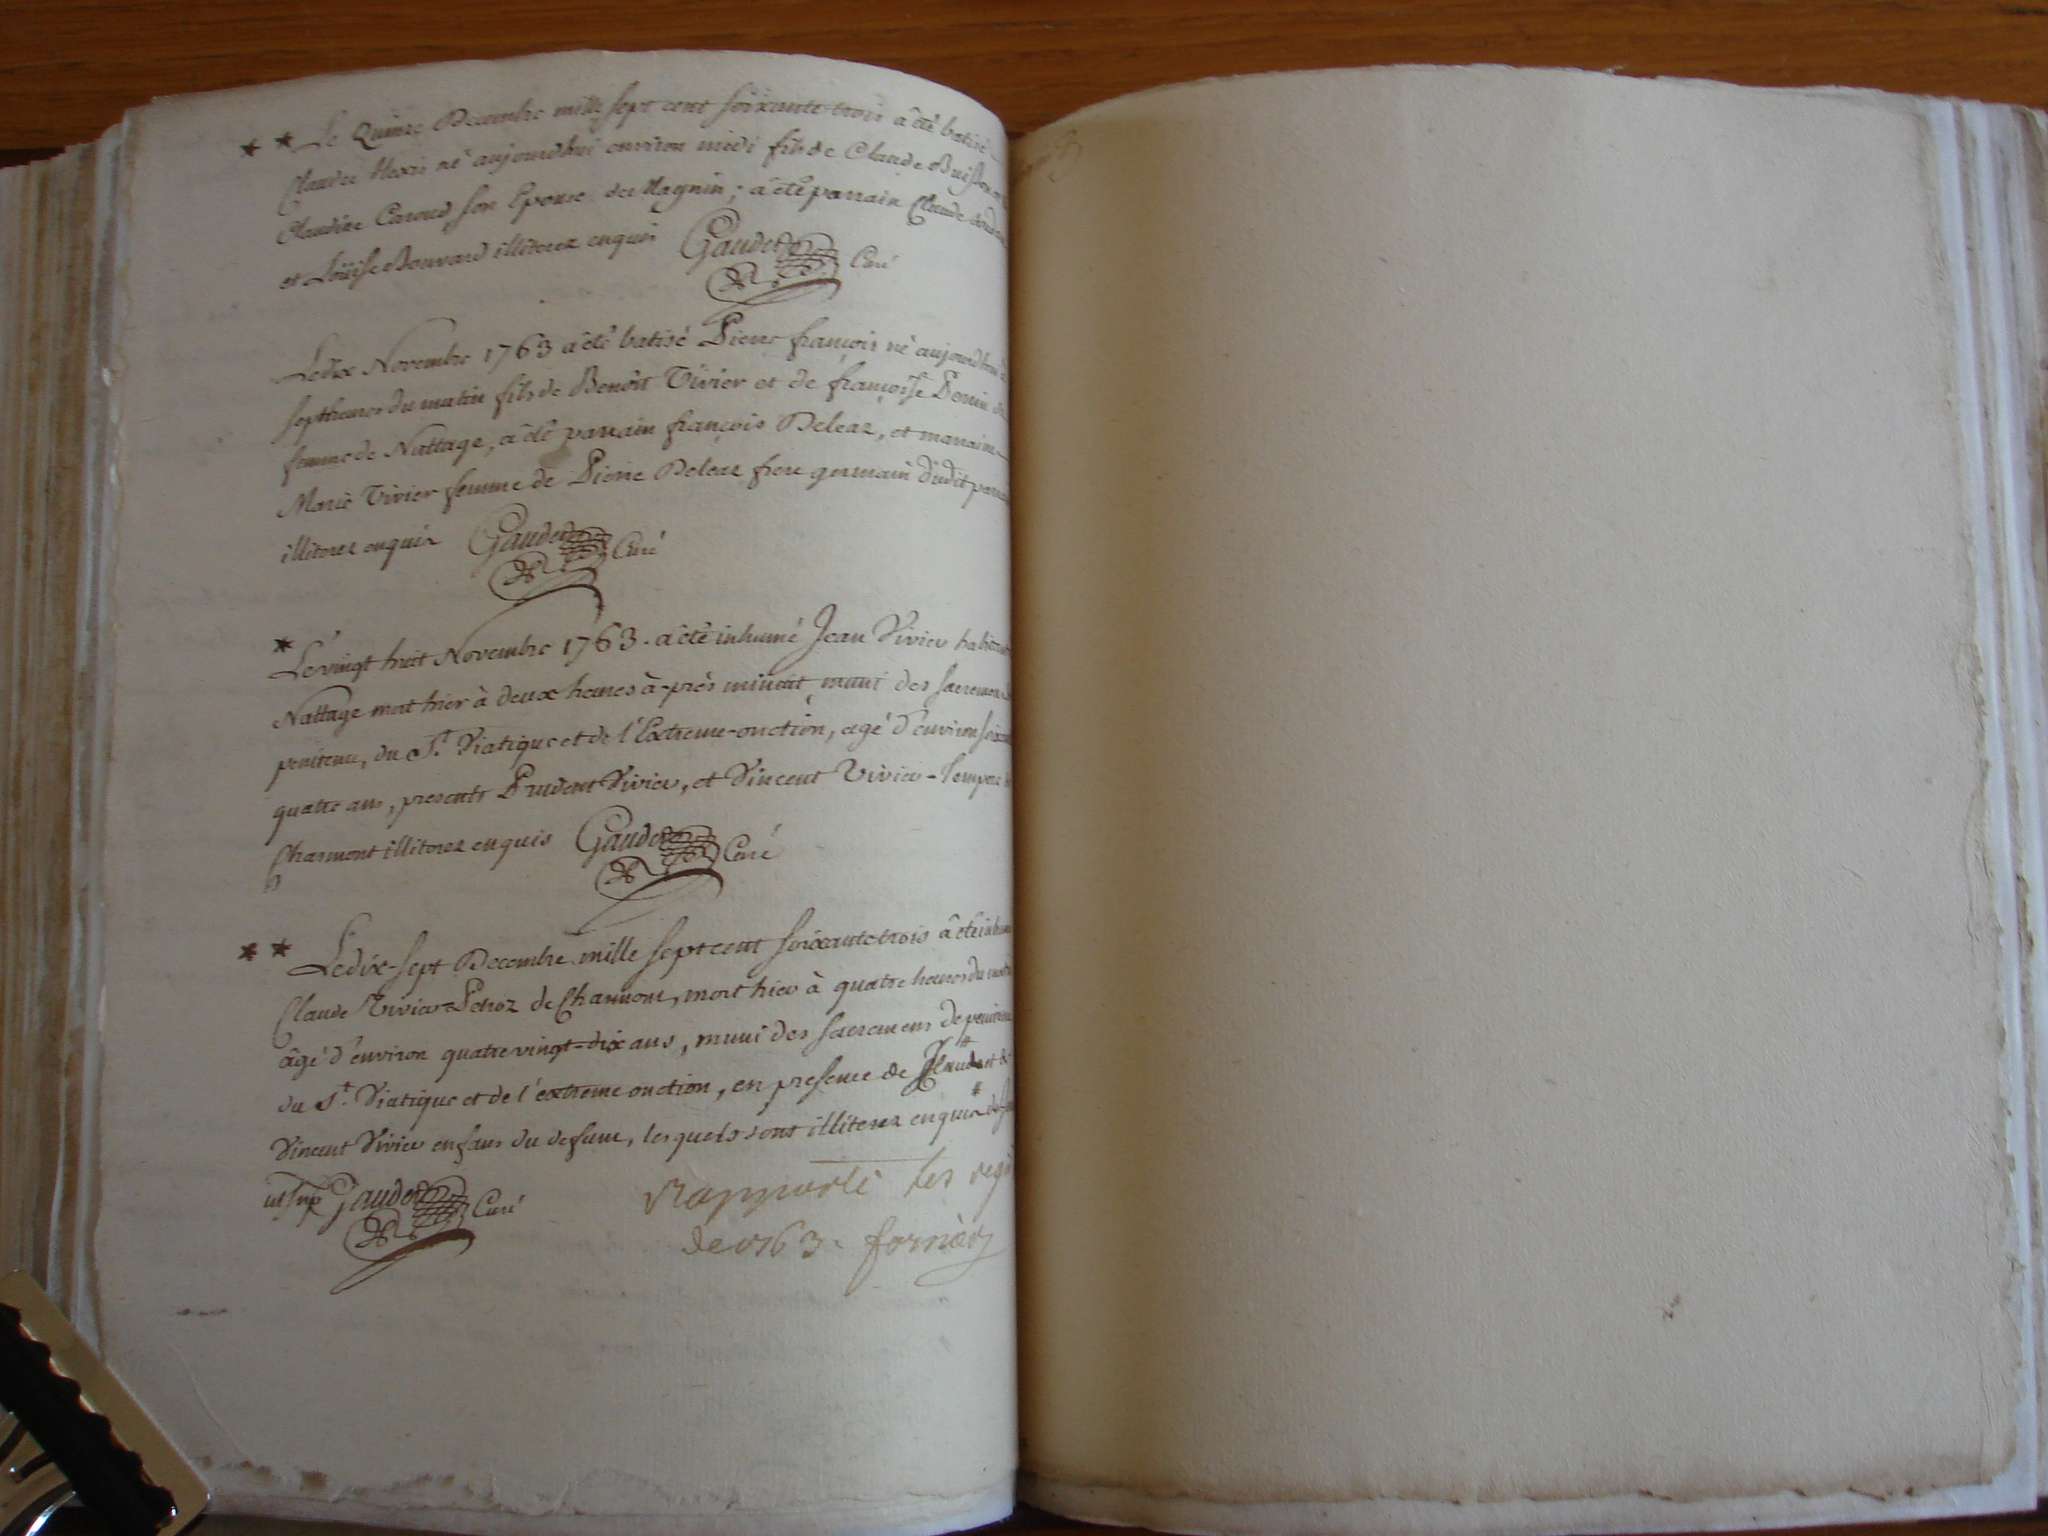 Le Quinze Decembre mille sept cent soixante-trois a été batisé
Claude né aujourdhui environ midi fils de Claude Buisson
Claudine son Epouse de Magnin ; a été parrain Claude
et Loüise Bouvard illiterez enquis Gaudet Curé
Le dix Novembre 1763 a été batisé Pierre françois né aujourdhui à
sept heures du matin fils de Benoit Vivier et de françoise
femme de Nattage, a été parrain françois Deleaz, et marraine
Marie Vivier femme de Pierre Deleaz frere germain dudit
illiterez enquis Gaudet Curé
Le vingt huit Novembre 1763. a été inhumé Jean Vivier
Nattage mort hier à deux heures à-près minuit muni des sacremens
penitence, du St. Viatique et de l'Extreme-onction, agé d'environ
quatre ans, presents Prudent Vivier, et Vincent Vivier-
Charmont illiterez enquis Gaudet Curé
Le dix-sept Decembre mille sept cent soixante trois a été
Claude Vivier de Charmont, mort hier à quatre heures du
âgé d'environ quatre vingt-dix ans, muni des sacremens de
du St. Viatique et de l'extreme onction, en presence de
Vincent Vivier enfans du defunt, lesquels sont illiterez enquis
ut sup Gaudet Curé
Rapporté les
de 1763.